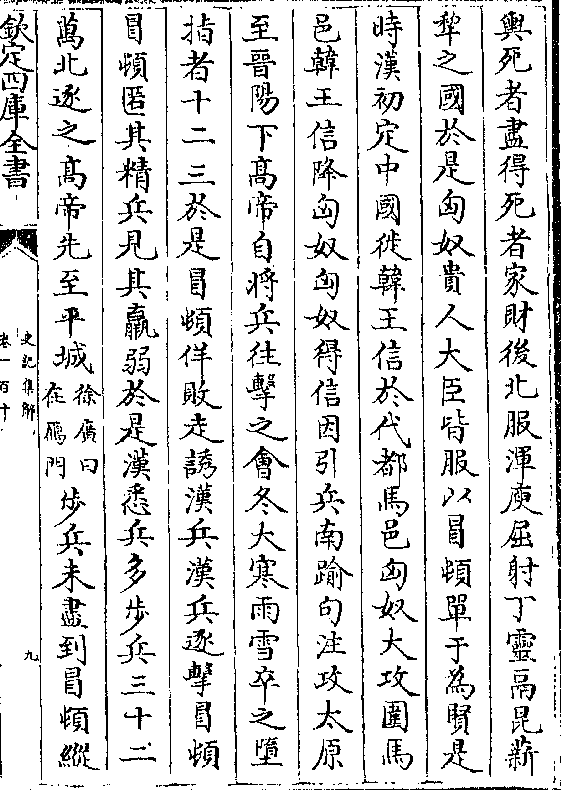 輿死者盡得死者家財後北服渾庾屈射丁靈鬲昆薪
犂之國於是匈奴貴人大臣皆服以冒頓單于為賢是
時漢初定中國徙韓王信於代都馬邑匈奴大攻圍馬
邑韓王信降匈奴匈奴得信因引兵南踰句注攻太原
至晉陽下髙帝自將兵往擊之會冬大寒雨雪卒之墮
指者十二三於是冒頓佯敗走誘漢兵漢兵逐擊冒頓
冒頓匿其精兵見其羸弱於是漢悉兵多步兵三十二
萬北逐之髙帝先至平城徐廣曰在鴈門步兵未盡到冒頓縱
欽定四庫全書
史記集解
卷一百十
九